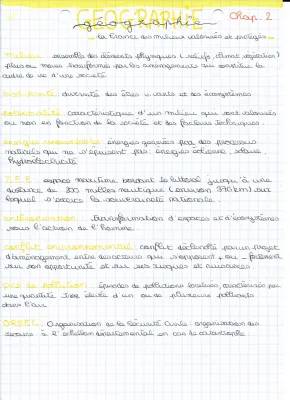 GEOGRAPHIE
géographie
Chap. 2
la France des milieux valorisés et protégés
milieu : ensemble des éléments physiques (relief, climat, végétation)
plus ou moins transformés par les aménagements qui constitue le
cadre de vie d'une société
biodiversité : diversité des êtres vivants et des écosystèmes
potentialité : caractéristique d'un milieu qui sont valorisés
ou non en fonction de la société et des facteurs techniques.
énergies renouvelables : énergies générées par des processus
naturels qui ne s'épuisent pas : énergies éolienne, solaire
hydroélectricité
Z.E.E : espace maritime bordant le littoral jusqu'à une
distance de 200 milles nautique (environ 370 km) sur
lequel s'exerce la souveraineté nationale.
anthropisation : transformation d'espaces et d'écosystèmes
sous l'action de l'homme.
conflit environnemental : conflit déclenché par un projet
d'aménagement entre des acteurs qui s'opposent + ou -
sur son opportunité et sur ses risques et nuisances
pics de pollution : épisodes de pollutions localisés, caractérisés par
une quantité très élevée d'un ou de plusieurs polluants
dans l'air
ORSEC : Organisation de la Sécurité Civile : organisation des
secours à l'échelon départemental en cas de catastrophe.